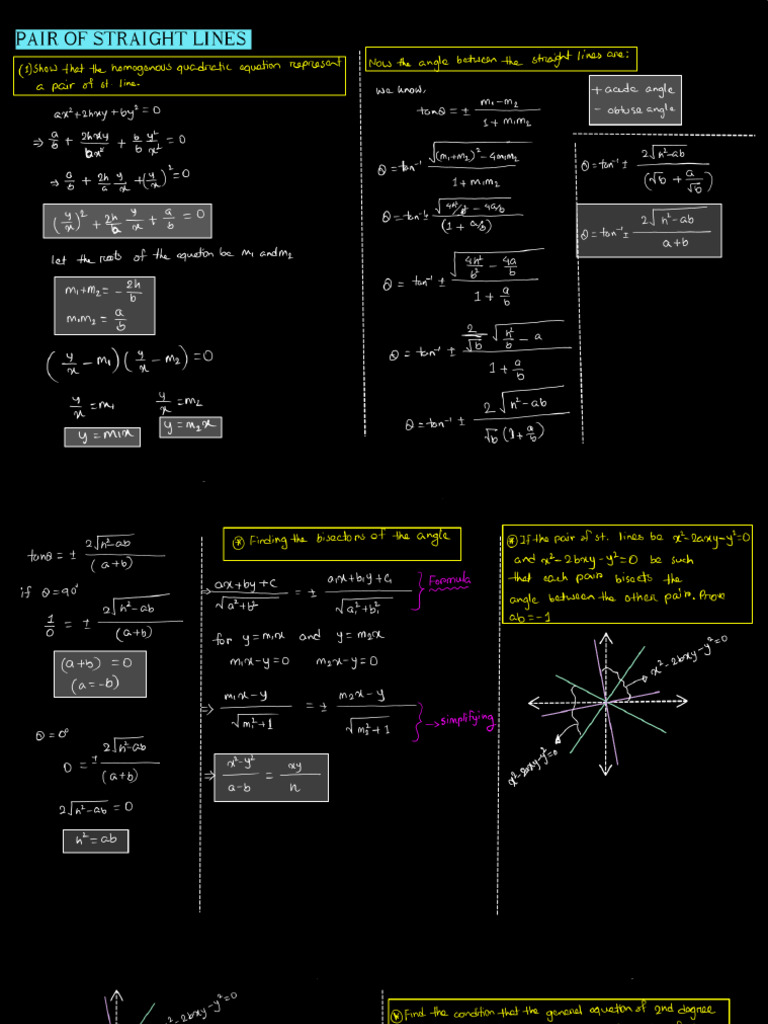 PAIR OF STRAIGHT LINES
(1) Show that the homogenous quadratic equation represent
a pair of st. line.
ax²+2hxy+by²=0
⇒ a/b + 2hxy/bx² + b/b y²/x² = 0
⇒ a/b + 2h/a y/x + (y/x)² = 0
(y/x)² + 2h/b y/x + a/b = 0
let the roots of the equation be m₁ and m₂
m₁+m₂ = -2h/b
m₁m₂ = a/b
(y/x - m₁)(y/x - m₂) = 0
y/x = m₁ y/x = m₂
y = m₁x y = m₂x
Now the angle between the straight lines are:
we know,
tanθ = ± m₁-m₂/1+m₁m₂
+ acute angle
- obtuse angle
θ = tan⁻¹ √(m₁+m₂)²-4m₁m₂/1+m₁m₂
θ = tan⁻¹± √4h²/b² - 4a/b/(1 + a/b)
θ = tan⁻¹ ± √4h²/b² - 4a/b/1 + a/b
θ = tan⁻¹ ± 2/√b √h²/b - a/1 + a/b
θ = tan⁻¹ ± 2√h²-ab/√b (1+a/b)
θ = tan⁻¹ ± 2√h²-ab/(√b + a/√b)
θ = tan⁻¹ ± 2√h²-ab/a+b
tanθ = ± 2√h²-ab/(a+b)
if θ = 90°
1/0 = ± 2√h²-ab/(a+b)
(a+b) = 0
(a=-b)
θ = 0°
0 = ± 2√h²-ab/(a+b)
2√h²-ab = 0
h² = ab
⊛ Finding the bisectors of the angle
⇒ ax+by+c/√a²+b² = ± a₁x+b₁y+c₁/√a₁²+b₁² } Formula
for y=m₁x and y=m₂x
m₁x-y=0 m₂x-y=0
⇒ m₁x-y/√m₁²+1 = ± m₂x-y/√m₂²+1 } → simplifying
⇒ x²-y²/a-b = xy/h
⊛ If the pair of st. lines be x²-2axy-y²=0
and x²-2bxy-y²=0 be such
that each pair bisects the
angle between the other pair. Prove
ab=-1
x²-2bxy-y²=0
x²-2axy-y²=0
x²-2bxy-y²=0
⊛ Find the condition that the general equation of 2nd degree